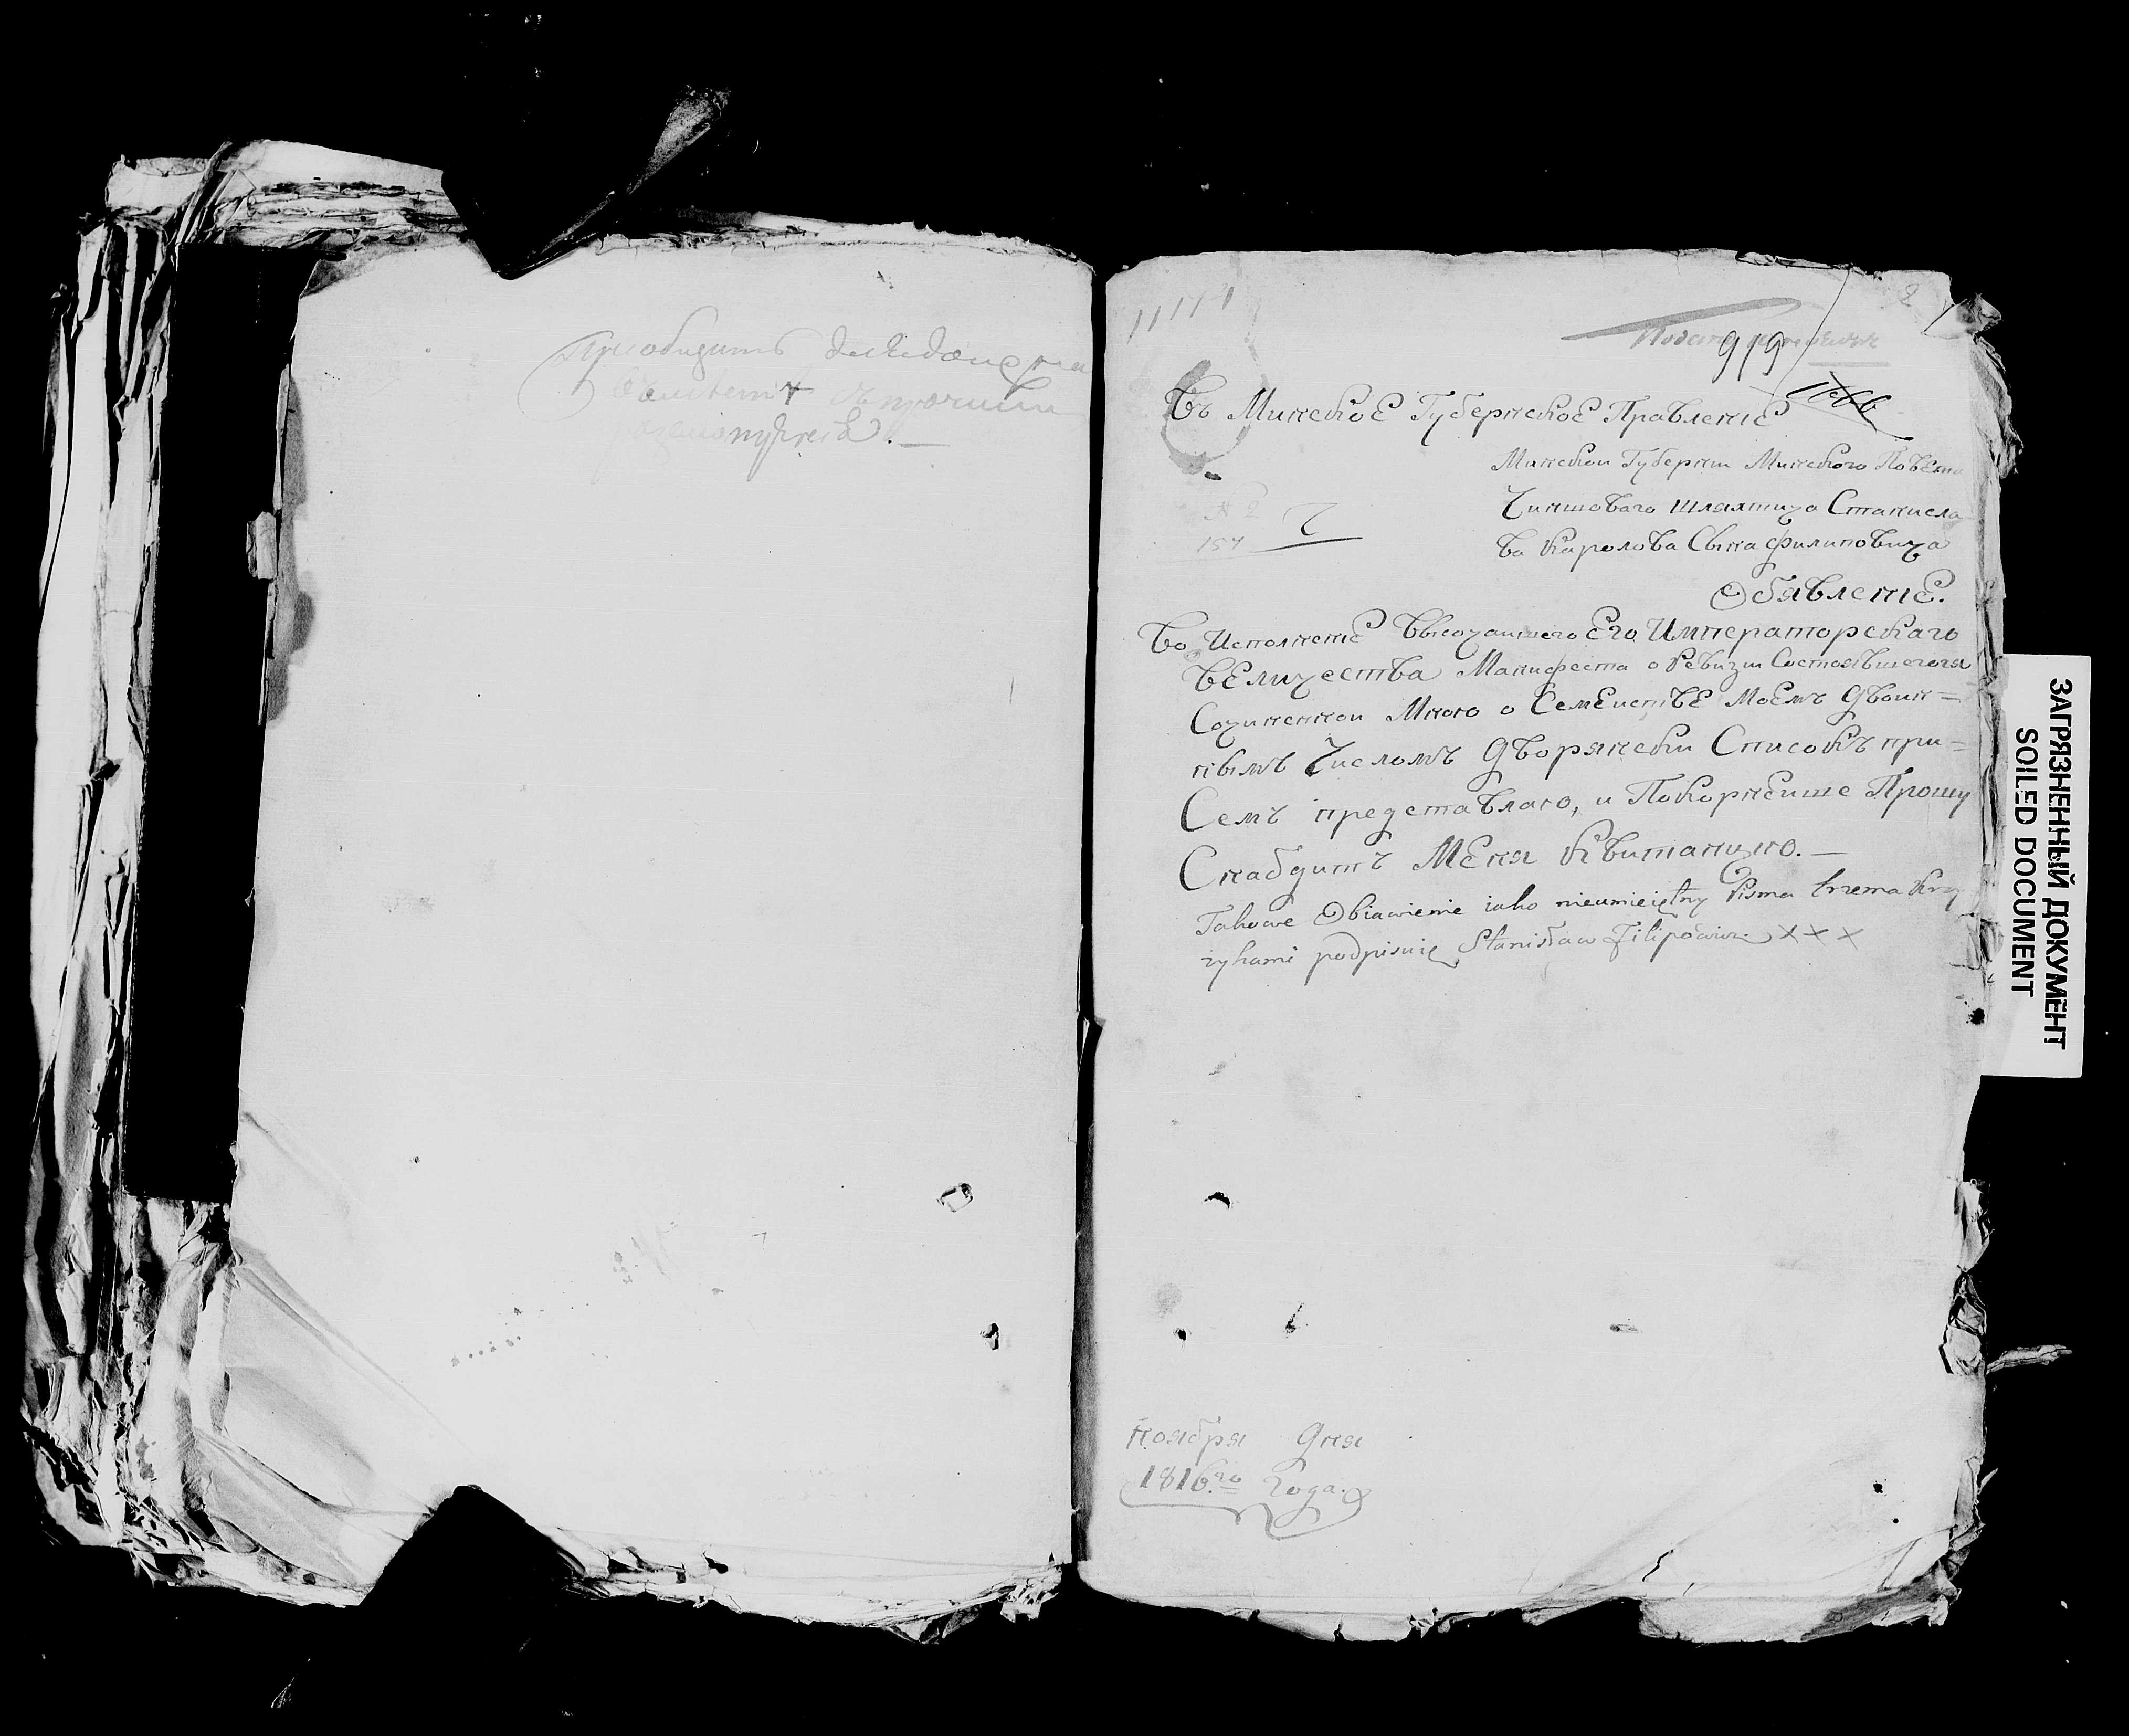 Приобщить
.—
2
919
1666
Въ Минское Губернское Правленіе
Минской Губерніи Минского Повета
Чиншоваго шляхтича Станисла
ва Каролова Сына Филиповича
№ 2
157
Обявленіе.
Во Исполненіе Высочаишего Его Императорскаго
Величества Манифеста о Ревизіи Состоявшегося
Сочиненнои Мною о Семействе Моемъ Двоин=
нымъ Числомъ Дворянски Списокъ при=
Семъ представляю, и Покорнеише Прошу
Снабдитъ Меня Квитанцию.—
Takowe Obiawienie iako nieumieiętny Pisma trzema Krzy
zykami podpisuię Stanisław Filipowicz XXX
Ноября Дня
1816го Года.
ЗАГРЯЗНЕННЫЙ ДОКУМЕНТ
SOILED DOCUMENT